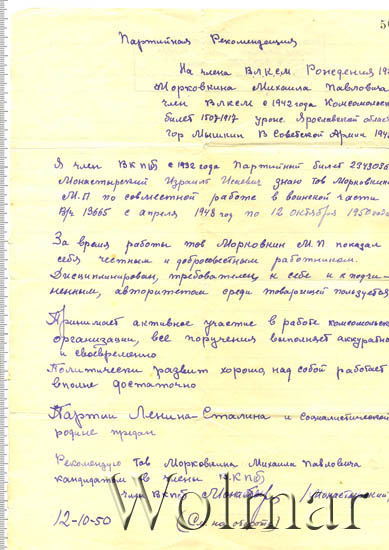 Партийная Рекомендация
На члена ВЛКСМ. Рождения 19
Морковкина Михаила Павловича
член ВЛКСМ с 1942 года Комсомольс
билет уроже Ярославской област
гор Мышкин В Советской Армии 194
Я член ВКП(б) с 1932 года Партийный билет
Монастырский Израиль знаю тов Морковкин
М.П по совместной работе в воинской части
В/ч 19665 с апреля 1948 год по 12 октября 1950 года
За время работы тов Морковкин М.П показал
себя честным и добросовестным работником.
Дисциплинирован, требователен к себе и к подчи-
ненным, авторитетом среди товарищей пользуется
Принимает активное участие в работе комсомольск
организации, все поручения выполняет аккуратно
и своевременно
Политически развит хорошо, над собой работает
вполне достаточно
Партии Ленина-Сталина и социалистической
родине предан
Рекомендую тов Морковкина Михаила Павловича
кандидатом в члены ВКП(б)
член ВКП(б) /Монастырский/
12-10-50 (см на обороте)
Wolmar